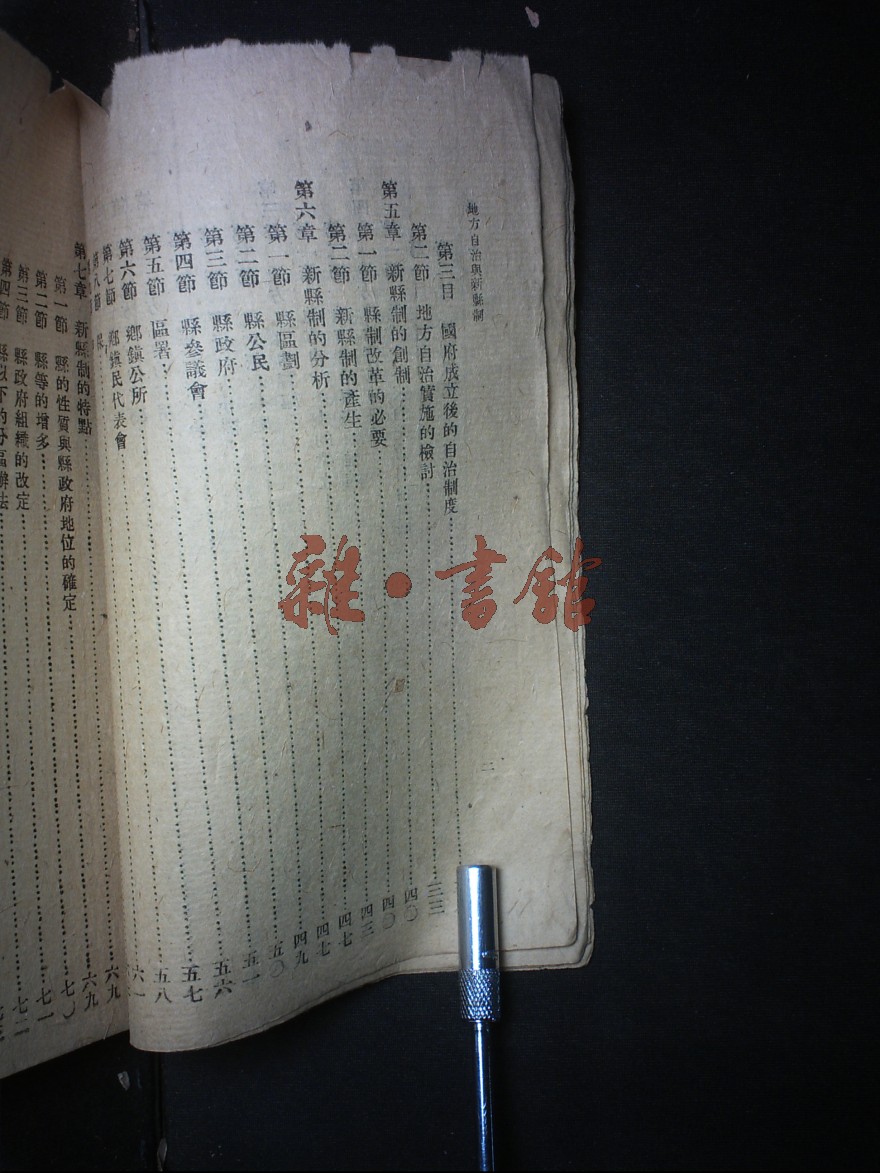 地方自治與新縣制 二
第三目 國府成立後的自治制度 三三
第二節 地方自治實施的檢討 四〇
第五章 新縣制的創制 四〇
第一節 縣制改革的必要 四三
第二節 新縣制的產生 四七
第六章 新縣制的分析 四七
第一節 縣區劃 四九
第二節 縣公民 五〇
第三節 縣政府 五一
第四節 縣參議會 五六
第五節 區署 五七
第六節 鄉鎮公所 五八
第七節 鄉鎮民代表會 六一
第八節 六九
第七章 新縣制的特點 六九
第一節 縣的性質與縣政府地位的確定 七〇
第二節 縣等的增多 七一
第三節 縣政府組織的改定 七二
第四節 縣以下的分區辦法
雜·書館